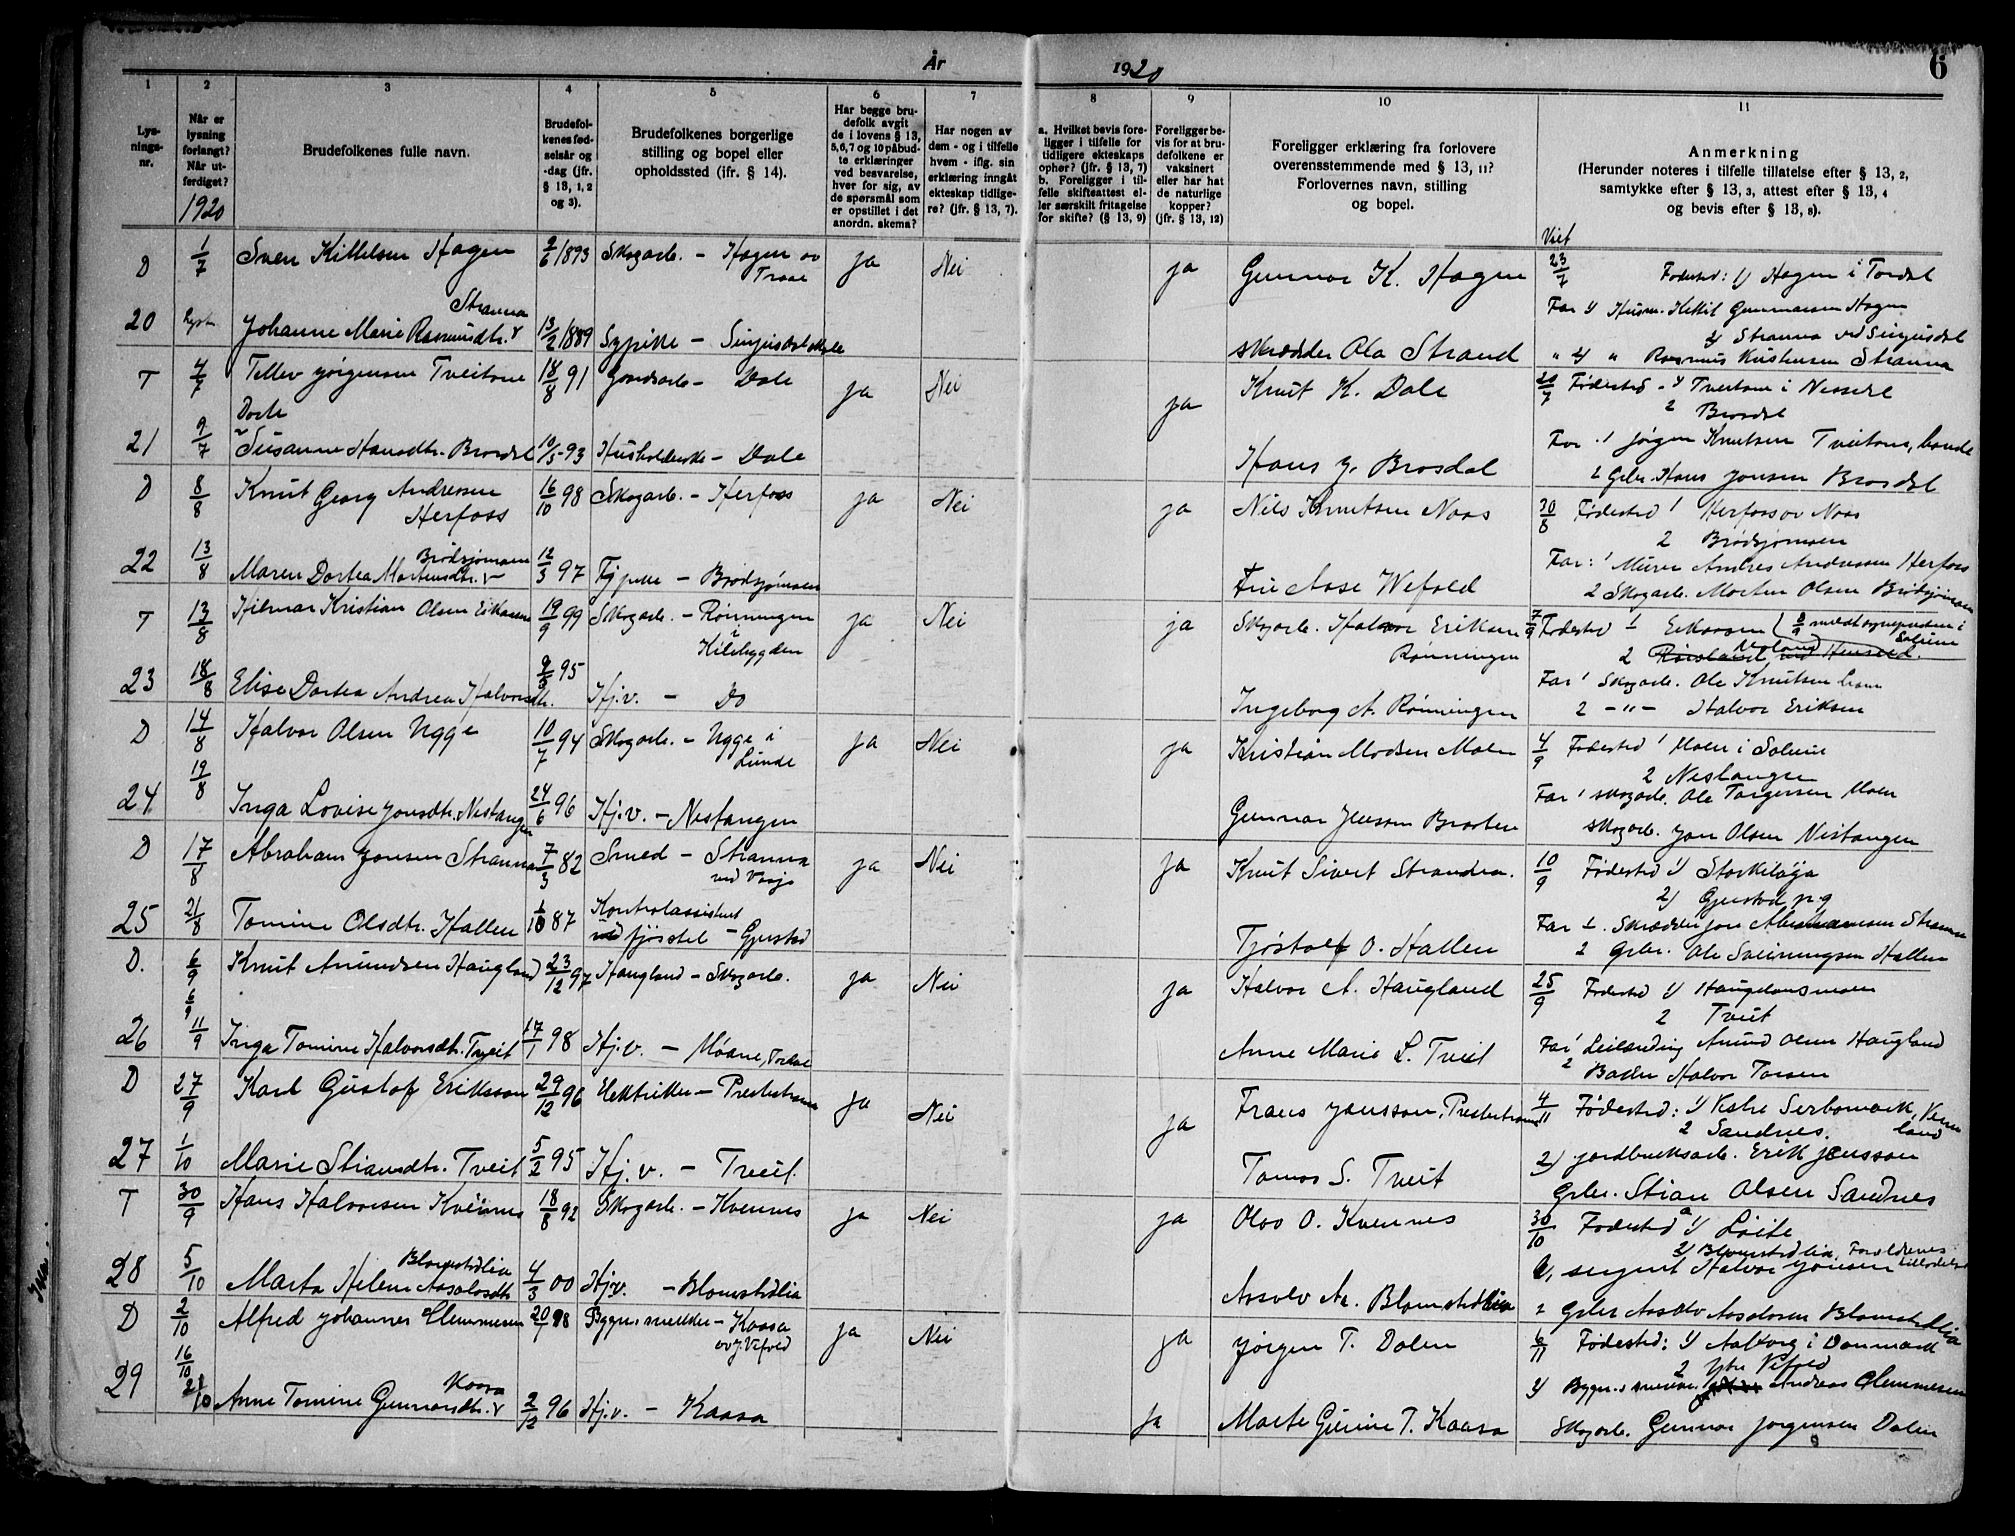 År 1920
6
1 2 3 4 5 6 7 8 9 10 11
Lysningsnr.
Når er lysning forlangt? Når utferdiget?
1920
Brudefolkenes fulle navn.
Brudefolkenes fødselsår og -dag (jfr. § 13, 1, 2 og 3).
Brudefolkenes borgerlige stilling og bopel eller opholdssted (ifr. § 14).
Har begge brudefolk avgit de i lovens § 13, 5, 6, 7 og 10 påbudte erklæringer ved besvarelse, hver for sig, av de spørsmål som er opstillet i det anordn. skema?
Har nogen av dem - og i tilfelle hvem - iflg. sin erklæring inngåt ekteskap tidligere? (jfr. § 13, 7).
a. Hvilket bevis foreligger i tilfelle for tidligere ekteskaps ophør? (jfr. § 13, 7) b. Foreligger i tilfelle skifteattest eller særskilt fritagelse for skifte? (§ 13, 9)
Foreligger bevis for at brudefolkene er vaksinert eller har hat de naturlige kopper? (jfr. § 13, 12)
Foreligger erklæring fra forlovere overensstemmende med § 13, 11? Forlovernes navn, stilling og bopel.
Anmerkning
(Herunder noteres i tilfelle tillatelse efter § 13, 2, samtykke efter § 13, 3, attest efter § 13, 4 og bevis efter § 13, 8).
Viet
D 1/7 Sven Killelsen Hagen 2/6 1893 Skogarb. - Hagen av Traae ja Nei ja Gunnar K. Hagen 23/7 Fødested: 1) Hagen i Tordal
Far 1) Husm. Kittil Gunnarsen Hagen
20 Johanne Marie Rasmusdtr. Stranna 13/2 1889 Sypike - skrædder Ola Strand
2) Stranna
" 2) " Rasmus Kristensen Stranna
T 4/7 Tellev Jørgensen Tveitane 18/8 91 Jordarb - Dale ja Nei ja Knut K. Dale 20/7 Fødested 1 Tveitane i Nissedl
2 Brosdal
21 9/7 Dorte Susanne Hansdtr. Brosdal 10/5 93 Husholderske - Dale Hans J. Brosdal
Far 1 Jørgen Knutsen Tveitane, bonde
2 Gbr. Hans Jonsen Brosdal
D 8/8 Knut Georg Andresen Herfoss 16/10 98 Skogarb. - Herfoss ja Nei ja Nils Knutsen Naas 30/8 Fødested 1 Herfoss av Naas
2 Brødsjømoen
22 13/8 Maren Dortea Mortensdtr. Brødsjømoen 12/3 97 - Brødsjømoen Fru Aase Wefald
Far: 1 Murer Andres Andresen Herfoss
2 Skogarb. Morten Olsen Brødsjømoen
T 13/8 Hilmar Kristian Olsen Eikaasen 19/9 99 Skogarb. - Rønningen i Kilebygden ja Nei ja Skogarb. Halvor Eriksen Rønningen 7/9 Fødested 1 Eikaasen
23 18/8 Elise Dortea Andrea Halvorsdtr. 9/3 95 Hj.v. - Do Ingeborg A. Rønningen
Far 1 Skogarb. Ole Knutsen
2 - " - Halvor Eriksen
D 14/8 Halvor Olsen Ugge 10/7 94 Skogarb. - Ugge i Lunde ja Nei ja Kristian Madsen Moen 4/9 Fødested 1 Moen i Solum
2 Nestangen
24 19/8 Inga Lovise Jonsdtr. Nestangen 24/6 96 Hj.v. - Nestangen Gunnar Jensen Braaten
Far 1 skogarb. Ole Torgersen Moen
skogarb. Jon Olsen Nestangen
D 17/8 Abraham Jonsen Stranna 7/3 82 Smed - Stranna ja Nei ja Knut Sivert Strandra. 10/9 Fødested 1)
2) Gjustad p.g
25 21/8 Tomine Olsdtr. Hallen 1/10 87 Kontrolassistent - Gjustad Tjøstolf O. Hallen
Far 1. Skrædder Jon Abrahamsen Stranna
2 Gbr. Ole Sveinungsen Hallen
D. 6/9 Knut Anundsen Haugland 23/12 97 Haugland - Skogarb. ja Nei ja Halvor A. Haugland 25/9 Fødested 1) Hauglansmoen
2 Tveit
26 11/9 Inga Tomine Halvorsdtr. Tveit 17/1 98 Hj.v. - Moane, Tordal Anne Marie L. Tveit
Far 1 Leilending Anund Olsen Haugland
2 Halvor Tarsen
D 27/9 Karl Gustof Eriksson 29/12 96 Elektriker - Prestestranna ja Nei ja Frans Jansson, Prestestranna 4/11 Fødested: 1) Vestre
2 Sandnes.
27 1/10 Marie Stiansdtr. Tveit 5/2 95 Hj.v. - Tveit. Tomas S. Tveit
2) jordbruksarb. Erik Jensson
Gbr. Stian Olsen Sandnes
T 30/9 Hans Halvorsen Kvennes 18/8 92 Skogarb. - Kvennes ja Nei ja Olav O. Kvennes 30/10 Fødested 1) Løite
2) Blomstødlia, Foreldrenes
28 5/10 Marta Helene Aasolvsdtr. Blomstødlia 4/3 00 Hj.v. - Blomstødlia Aasolv Aa. Blomstødlia
1, sergent Halvor Jonsen
2 Gbr Aasolv Aasolvsen Blomstødlia
D 2/10 Alfred Johannes Clemmesen 20/1 98 Bygn. snekker - Kaasa ja Nei ja Jørgen T. Dalen 6/11 Fødested: 1) Aalborg i Danmark
2 Ytre Vefald
29 16/10 21/10 Anne Tomine Gunnarsdtr. Kaasa 2/12 96 Hj.v. - Kaasa ja Marte Gurine T. Kaasa
1) Bygn. s Andreas Clemmesen
Skogarb. Gunnar Jørgensen Dalen